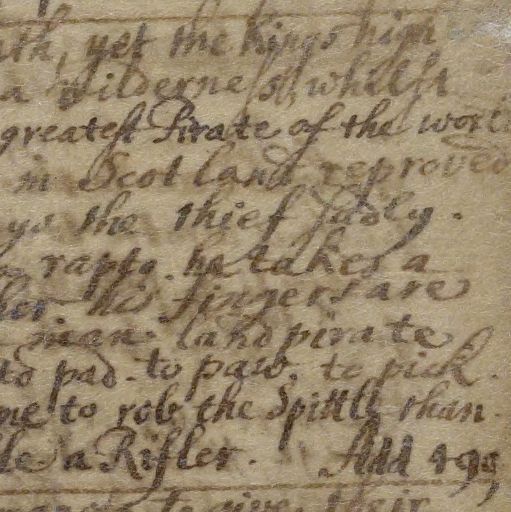 ath, yet the Kings high
a wilderness, whilst
greatest Pirate of the worl
in Scotland reproved
ys the thief sadly.
rapto. he takes a
his fingers are
man. land pirate
to pad. to paw. to pick.
me to rob the Spittle than
le a Rifler. Add 499
to give their